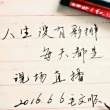 人生没有彩排
每天都是
现场直播
2016.6.6